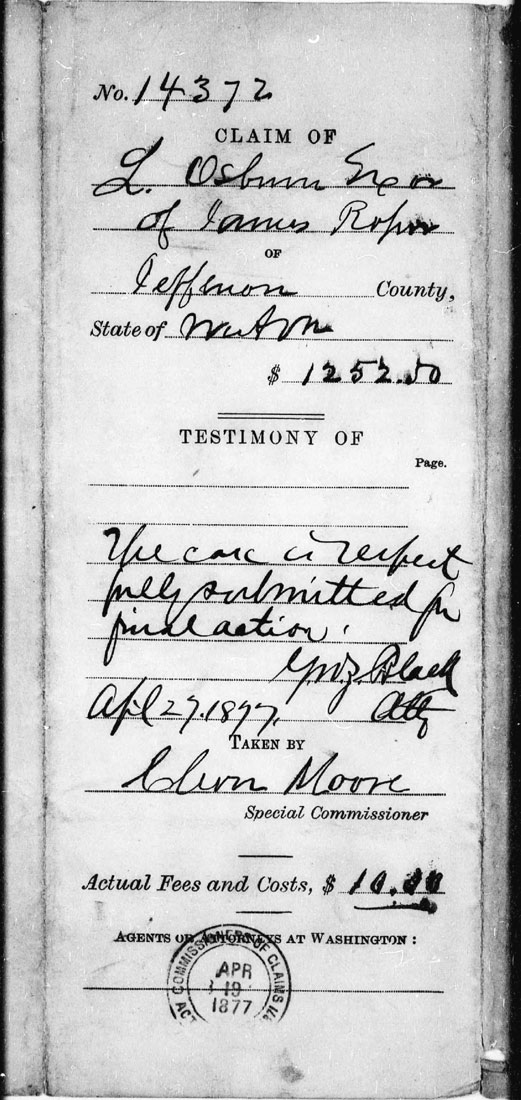 No. 14372
CLAIM OF
L. Osburn Exor
of James Roper
OF
Jefferson County,
State of West Va
$ 1252.50
TESTIMONY OF
Page.
The case is respect
fully submitted for
final action.
Black
Apl 27. 1877. Atty
TAKEN BY
Cleon Moore
Special Commissioner
Actual Fees and Costs, $ 10.00
AGENTS OR ATTORNEYS AT WASHINGTON:
COMMISSIONERS OF CLAIMS
ACT
APR
19
1877